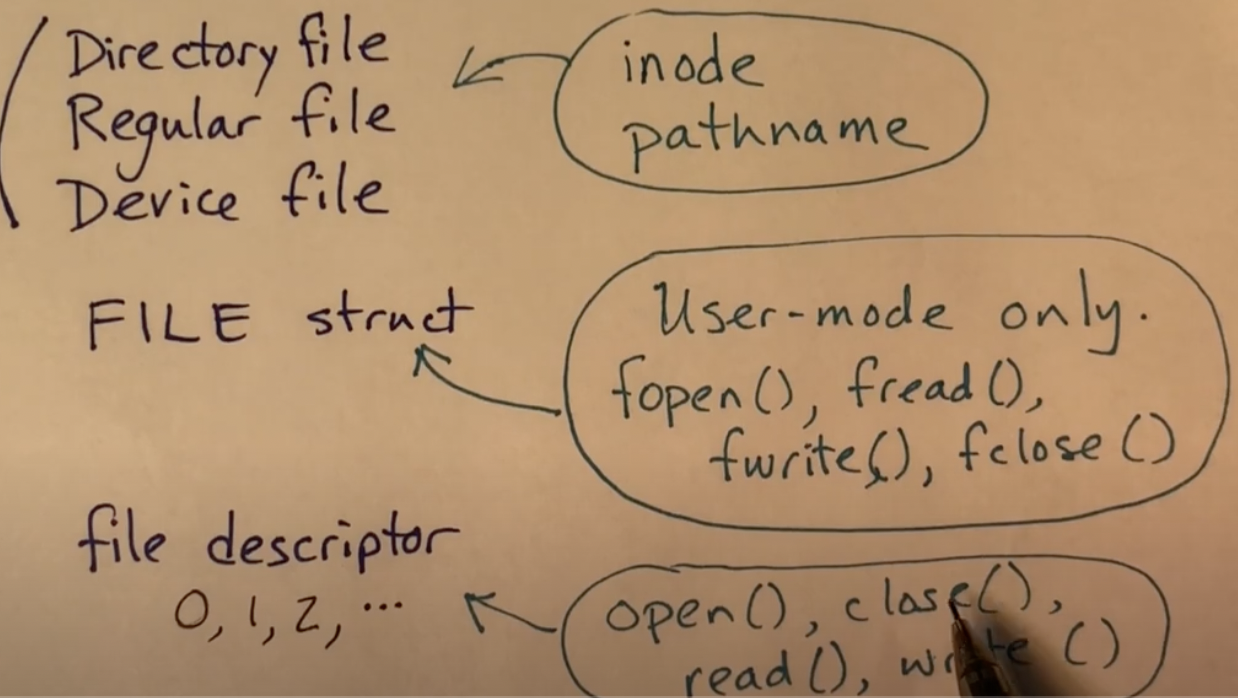 Directory file
Regular file
Device file
inode
pathname
FILE struct
User-mode only.
fopen(), fread(),
fwrite(), fclose()
file descriptor
0, 1, 2, ...
open(), close(),
read(), write()